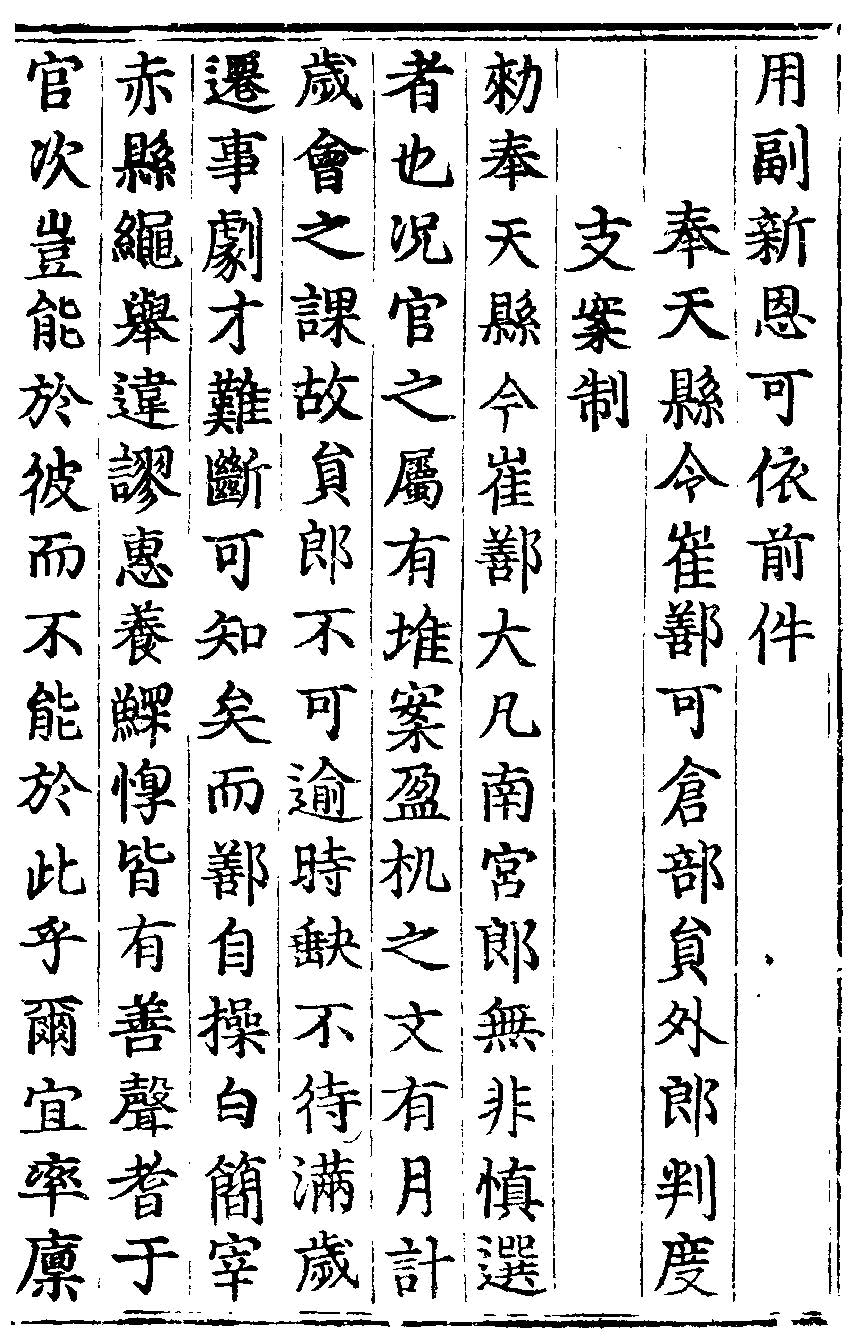 用副新恩可依前件
奉天縣令崔鄯可倉部員外郎判度
支案制
勑奉天縣令崔鄯大凡南宮郎無非慎選
者也况官之屬有堆案盈机之文有月計
歲會之課故員郎不可逾時缺不待滿歲
遷事劇才難斷可知矣而鄯自操白簡宰
赤縣繩舉違謬惠養鰥惸皆有善聲耆于
官次豈能於彼而不能於此乎爾宜率廪